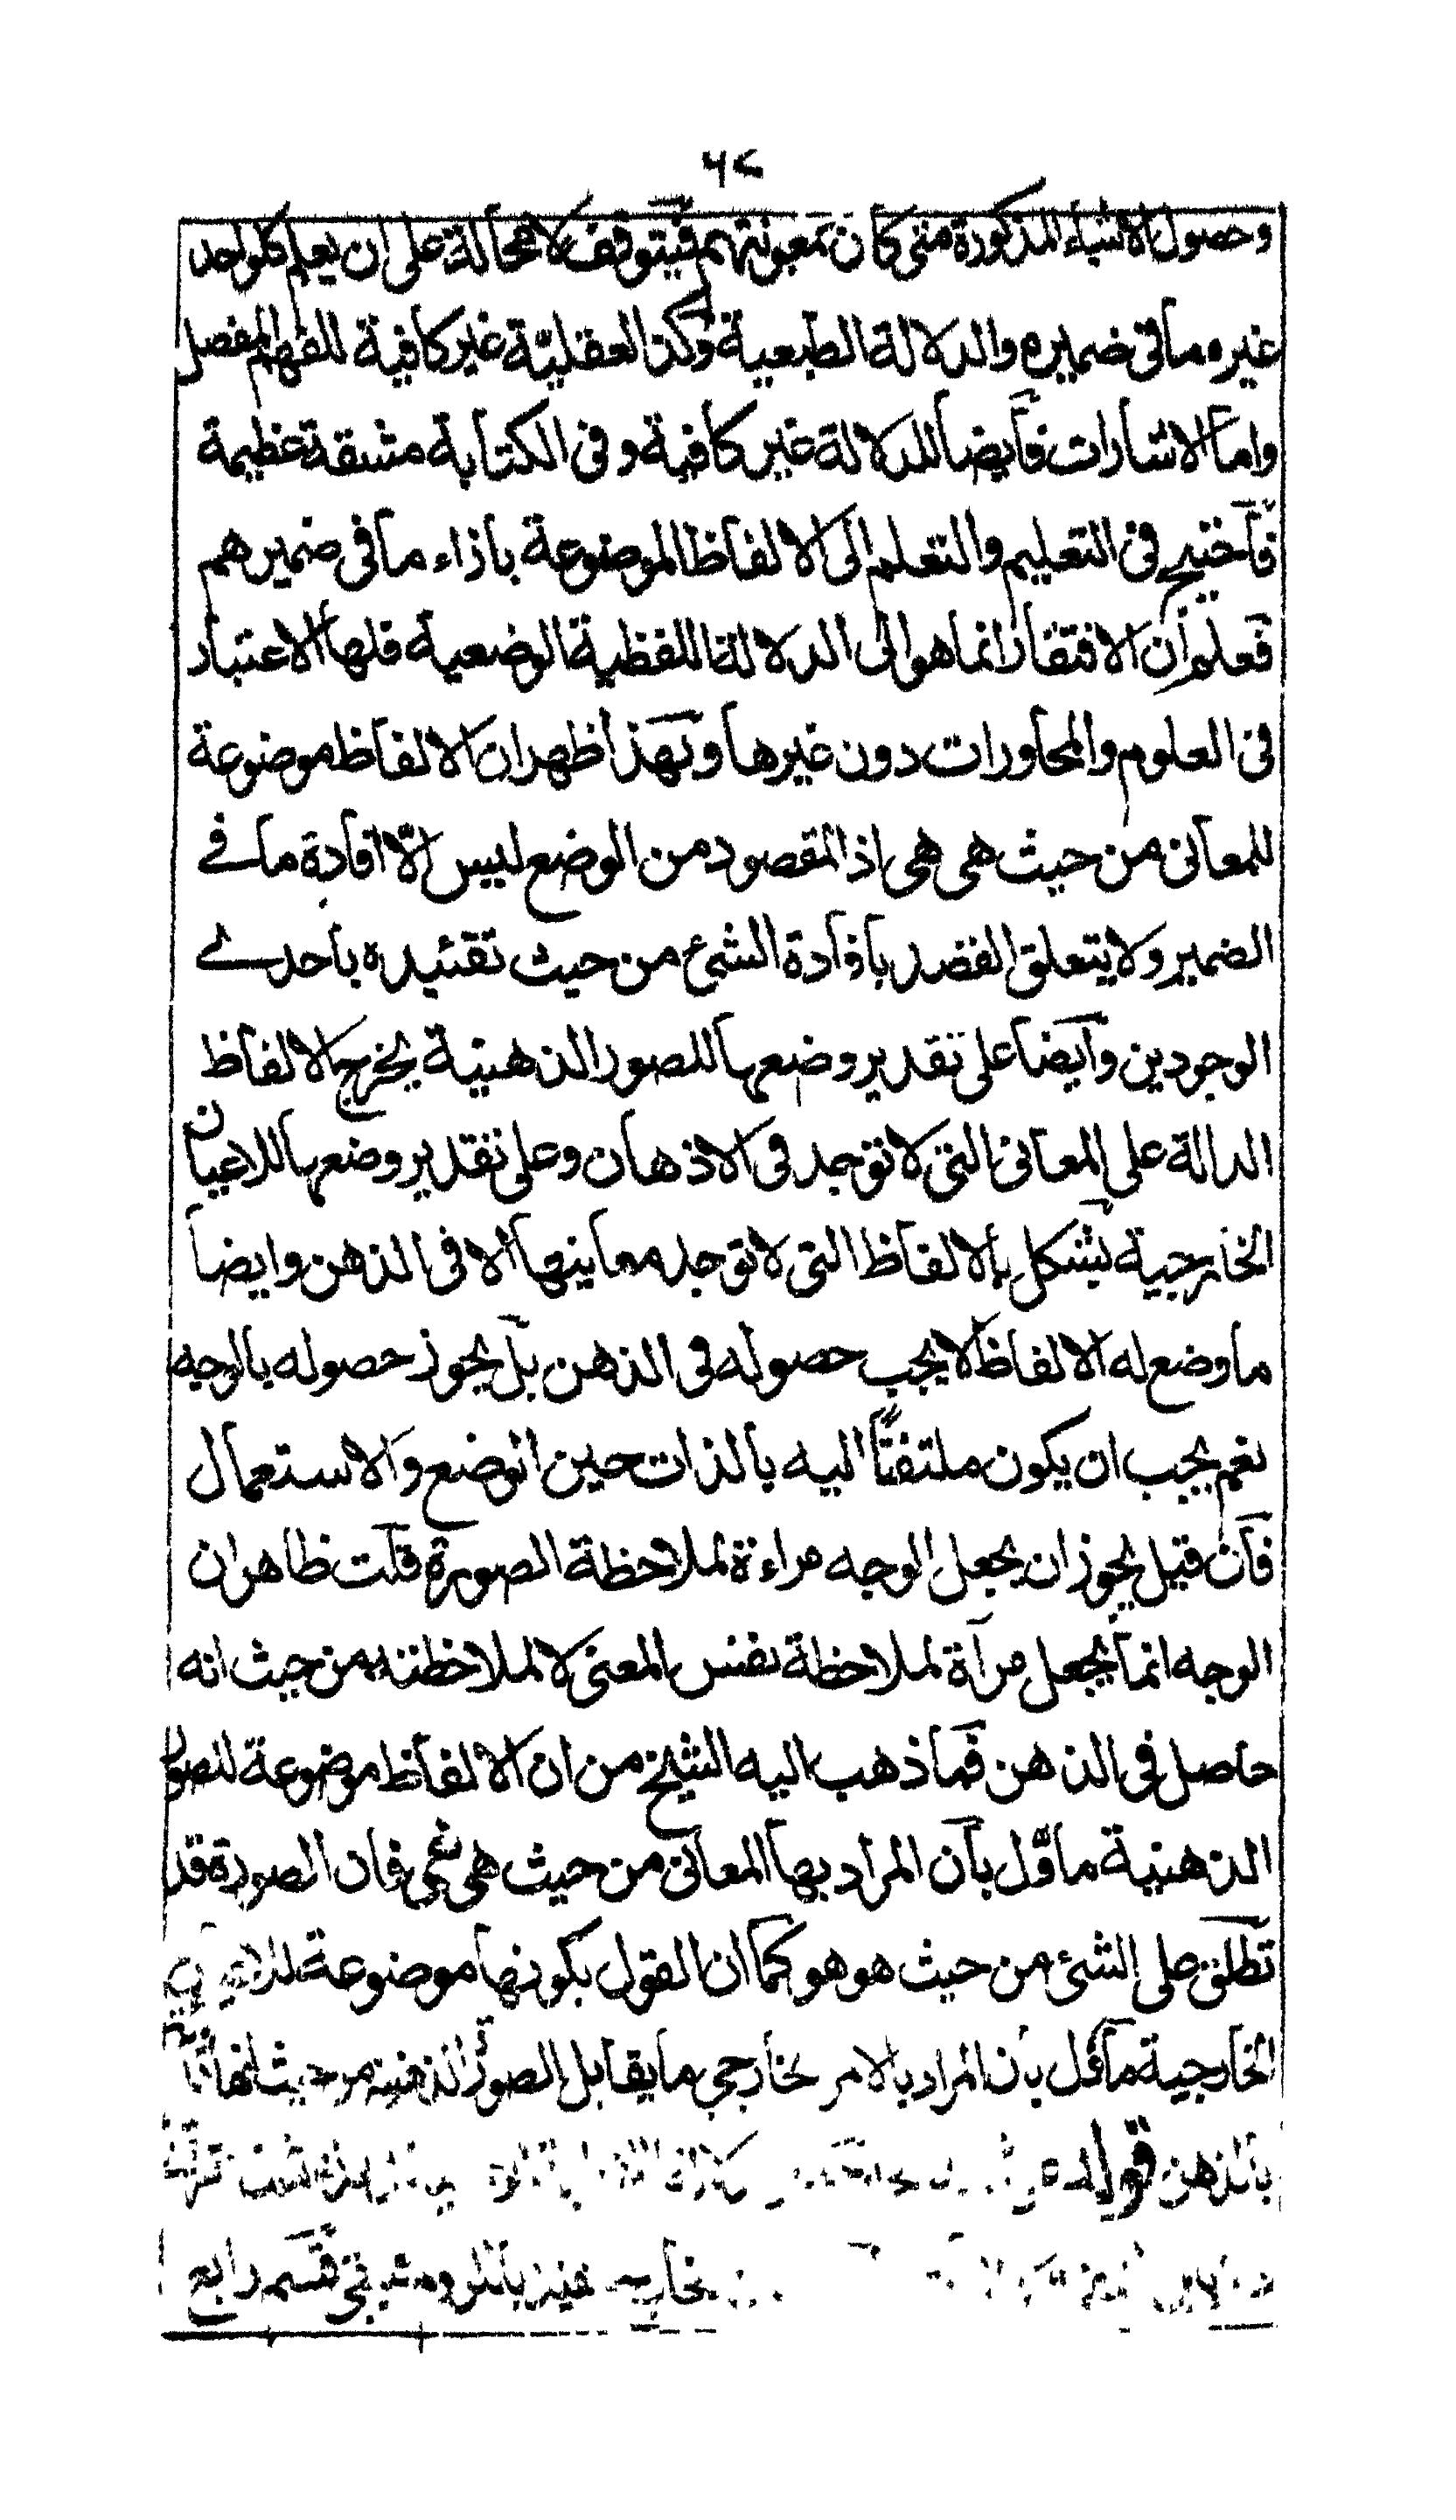 ٦٢
وحصول الاشياء المذكورة متى كان بمعونتهم فيتوقف لا محالة على ان يعلم كل واحد
غيره ما في ضميره والدلالة الطبعية وكذا العقلية غير كافية للفهم المفصل
واما الاشارات فايضا للدلالة غير كافية وفى الكتابة مشقة عظيمة
فاحتيج فى التعليم والتعلم الى الالفاظ الموضوعة بازاء ما فى ضميرهم
فعلم ان الافتقار انما هو الى الدلالة اللفظية الوضعية فلها الاعتبار
فى العلوم والمحاورات دون غيرها وبهذا ظهر ان الالفاظ موضوعة
للمعانى من حيث هى هى اذ المقصود من الوضع ليس الّا افادة ما فے
الضمير ولا يتعلق القصد بافادة الشئ من حيث تقئيده باحدے
الوجودين وايضا على تقدير وضعها للصور الذهنية يخرج الالفاظ
الدالة على المعانى التى لا توجد فى الاذهان وعلى تقدير وضعها للاعيان
الخارجية يشكل بالالفاظ التى لا توجد معاينها الا فى الذهن وايضا
ما وضع له الالفاظ لا يجب حصوله فى الذهن بل يجوز حصوله بالوجه
نعم يجب ان يكون ملتفتًا اليه بالذات حين الوضع والاستعمال
فان قيل يجوز ان يجعل الوجه مراءة لملاحظة الصورة قلت ظاهر ان
الوجه انما يجعل مرآة لملاحظة نفس المعنى لا لملاحظته من حيث انه
حاصل فى الذهن فما ذهب اليه الشيخ من ان الالفاظ موضوعة للصور
الذهنية ماوّل بان المراد بها المعانى من حيث هى هى فان الصورة قد
تطلق على الشئ من حيث هو هو كما ان القول بكونها موضوعة للاعيان
الخارجية ماول بان المراد بالامر الخارجى ما يقابل الصور الذهنية من حيث انها قائمة
بالذهن قوله
قسم رابع